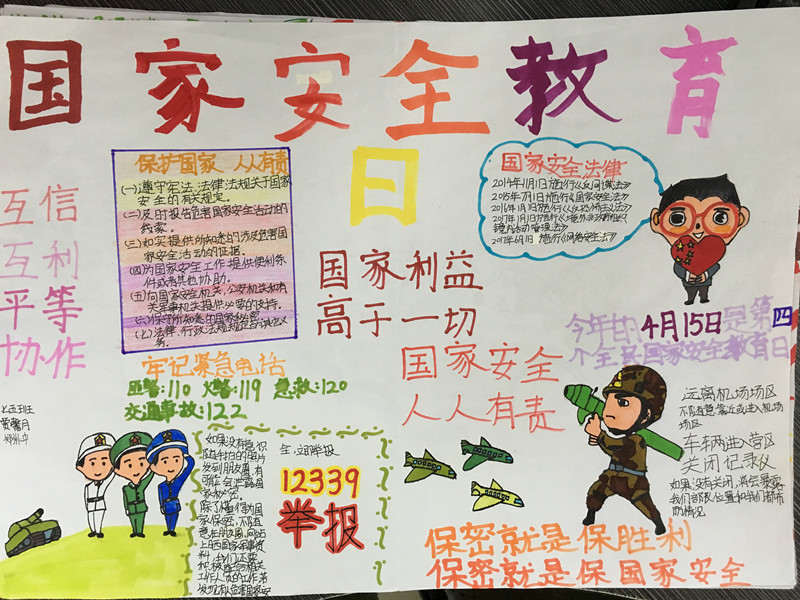 国家安全教育
日
保护国家 人人有责
(一)遵守宪法、法律法规关于国家
安全的有关规定。
(二)及时报告危害国家安全活动的
线索。
(三)如实提供所知悉的涉及危害国
家安全活动的证据。
(四)为国家安全工作提供便利条
件或者其他协助。
(五)向国家安全机关、公安机关和有
关军事机关提供必要的支持。
(六)保守所知悉的国家秘密。
(七)法律、行政法规规定的其他义
务。
国家安全法律
2014年11月1日施行《反间谍法》
2015年7月1日施行《国家安全法》
2016年1月1日施行《反恐怖主义法》
2017年1月1日施行《境外非政府组织
境内活动管理法》
2017年6月1日 施行《网络安全法》
互信
互利
平等
协作
国家利益
高于一切
国家安全
人人有责
今年的4月15日是第四
个全民国家安全教育日
牢记紧急电话
匪警:110 火警:119 急救:120
交通事故:122
远离机场场区
不随意靠近或进入机场
场区
车辆进入营区
关闭记录仪
如果没有关闭,将会暴露
我们部队位置和我们都市
的情况
如果没有意识
随手扫的照片
发到朋友圈,有
可能会泄露国
家秘密。
除了懂得为国
家保密,不随
意
12339
举报
保密就是保胜利
保密就是保国家安全